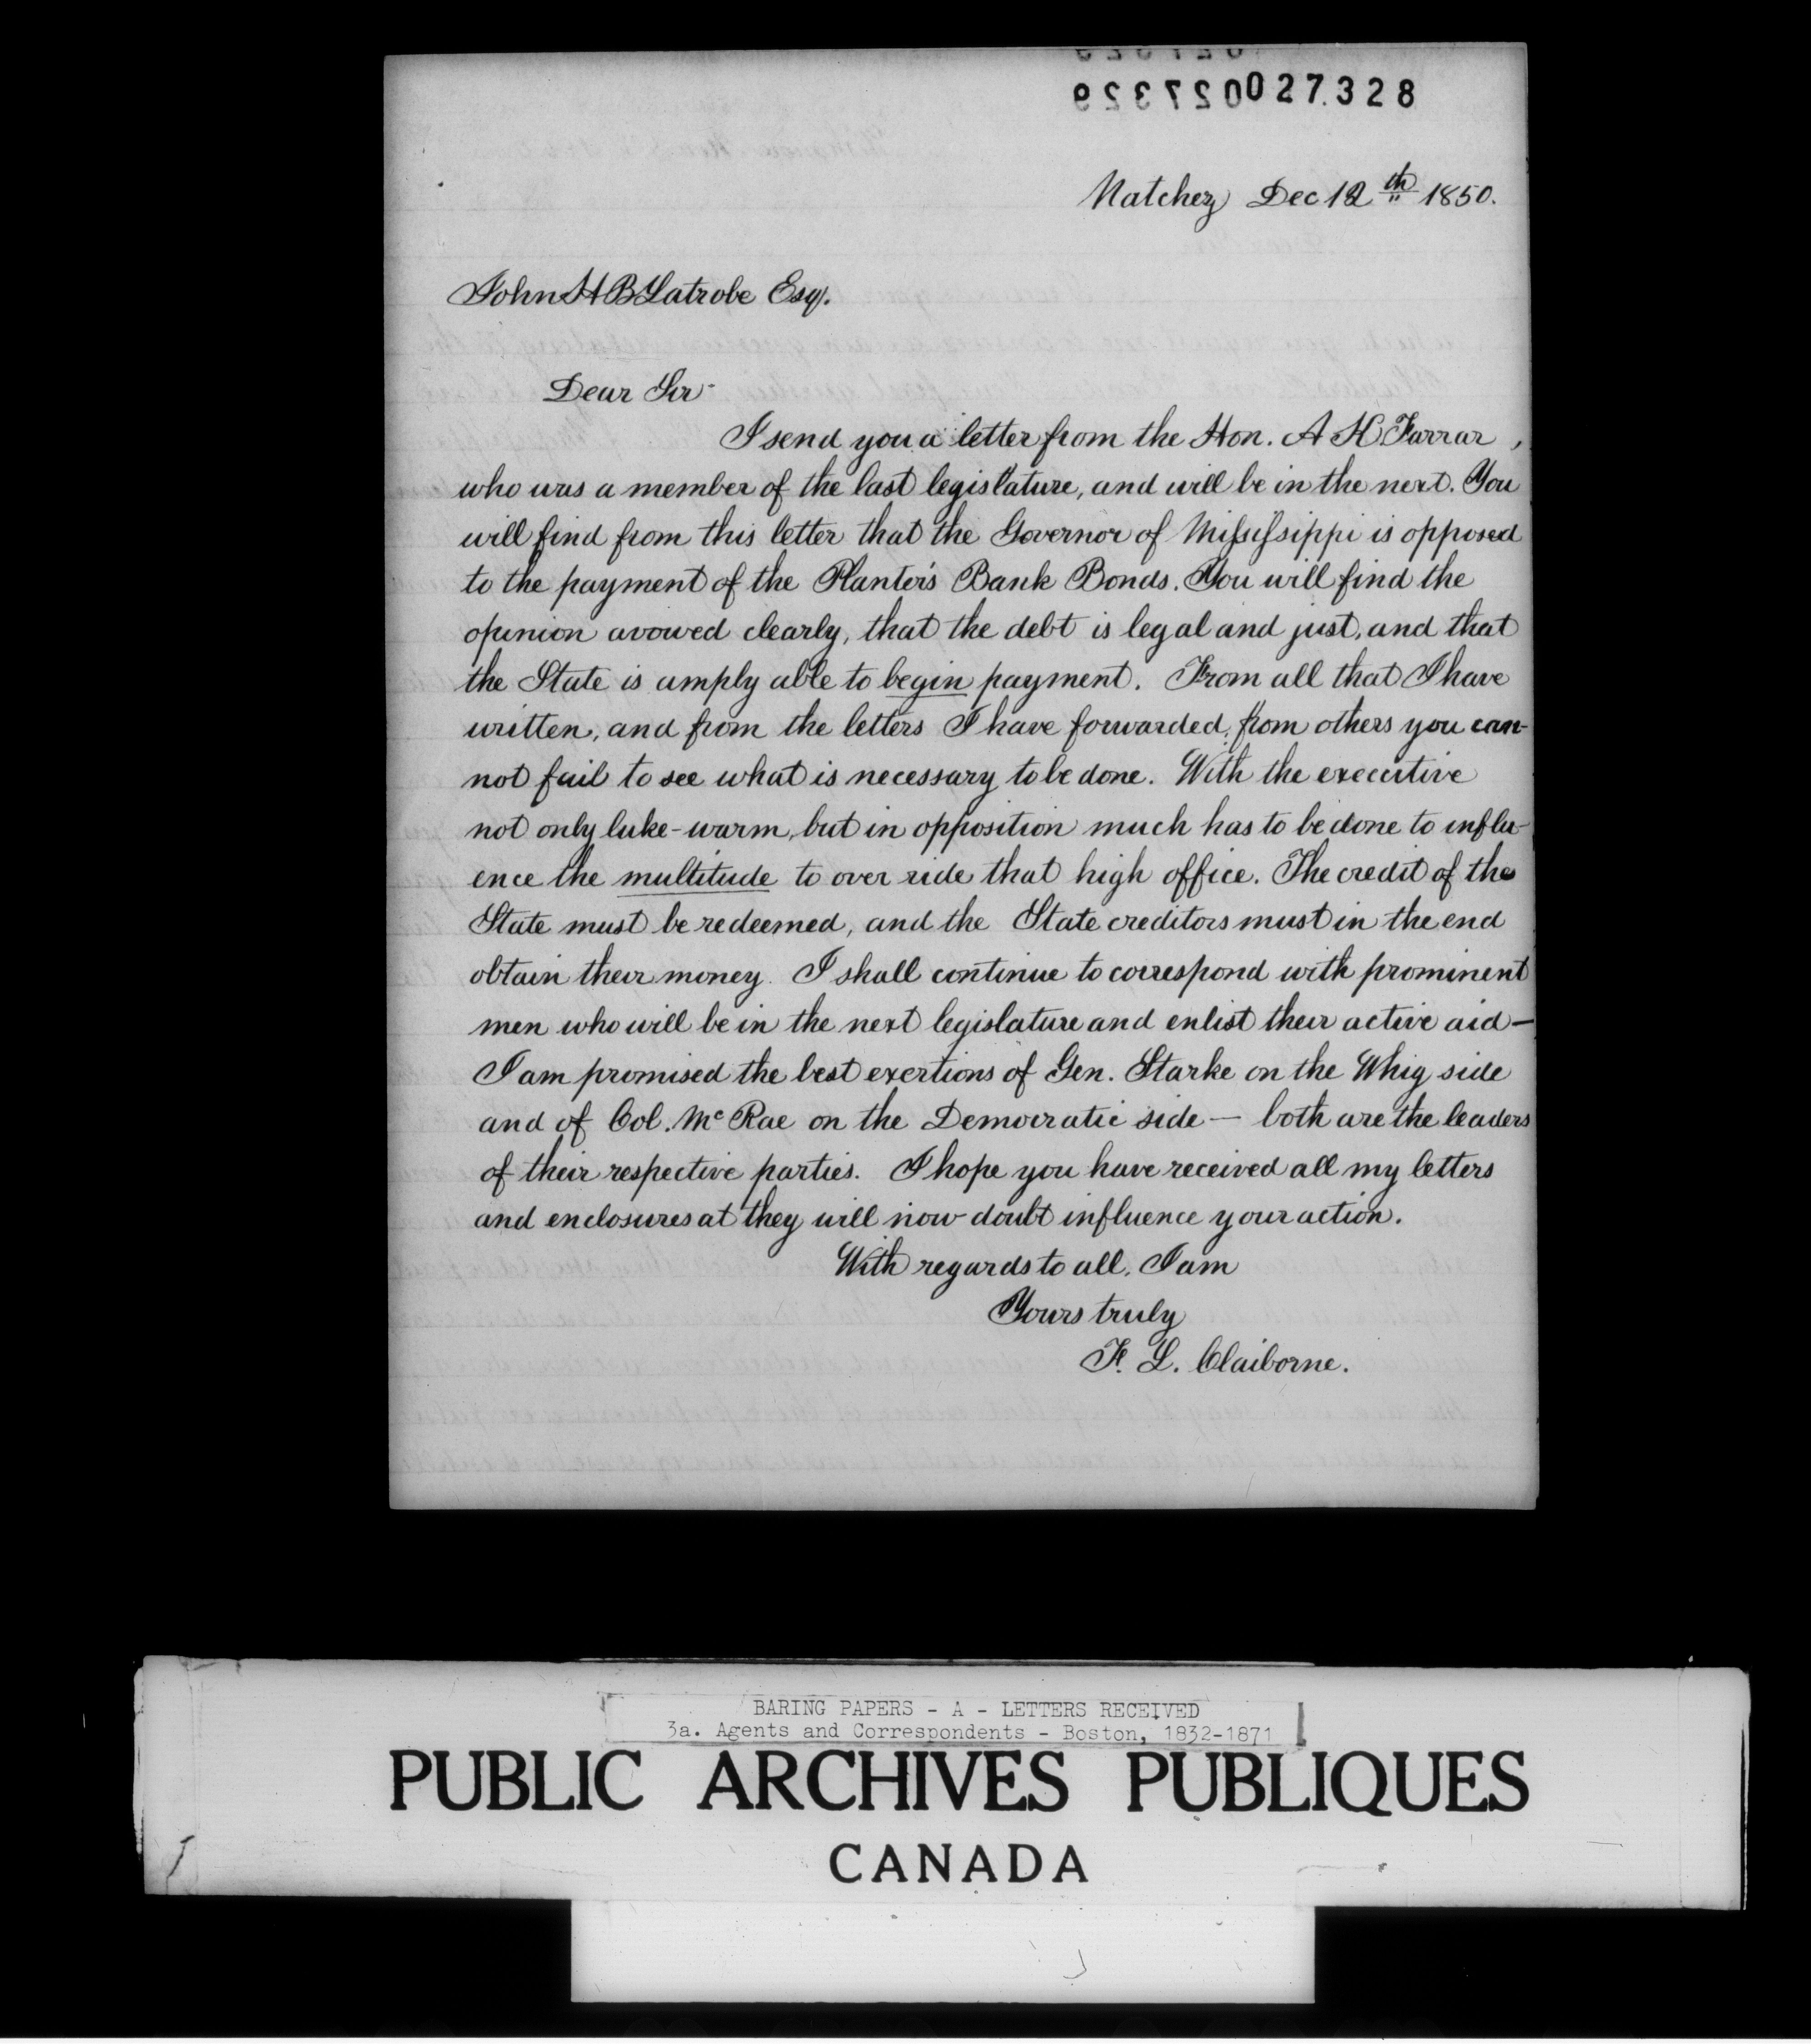 027328
Natchez Dec 12th 1850.
John H B Latrobe Esq.
Dear Sir-
I send you a letter from the Hon. A K Farrar,
who was a member of the last legislature, and will be in the next. You
will find from this letter that the Governor of Mississippi is opposed
to the payment of the Planter's Bank Bonds. You will find the
opinion avowed clearly, that the debt is legal and just, and that
the State is amply able to begin payment. From all that I have
written, and from the letters I have forwarded, from others you can-
not fail to see what is necessary to be done. With the executive
not only luke-warm, but in opposition much has to be done to influ-
ence the multitude to over ride that high office. The credit of the
State must be redeemed, and the State creditors must in the end
obtain their money. I shall continue to correspond with prominent
men who will be in the next legislature and enlist their active aid—
I am promised the best exertions of Gen. Starke on the Whig side
and of Col. McRae on the Democratic side — both are the leaders
of their respective parties. I hope you have received all my letters
and enclosures at they will now doubt influence your action.
With regards to all, I am
Yours truly
F. L. Claiborne.
BARING PAPERS - A - LETTERS RECEIVED
3a. Agents and Correspondents - Boston, 1832-1871
PUBLIC ARCHIVES PUBLIQUES
CANADA